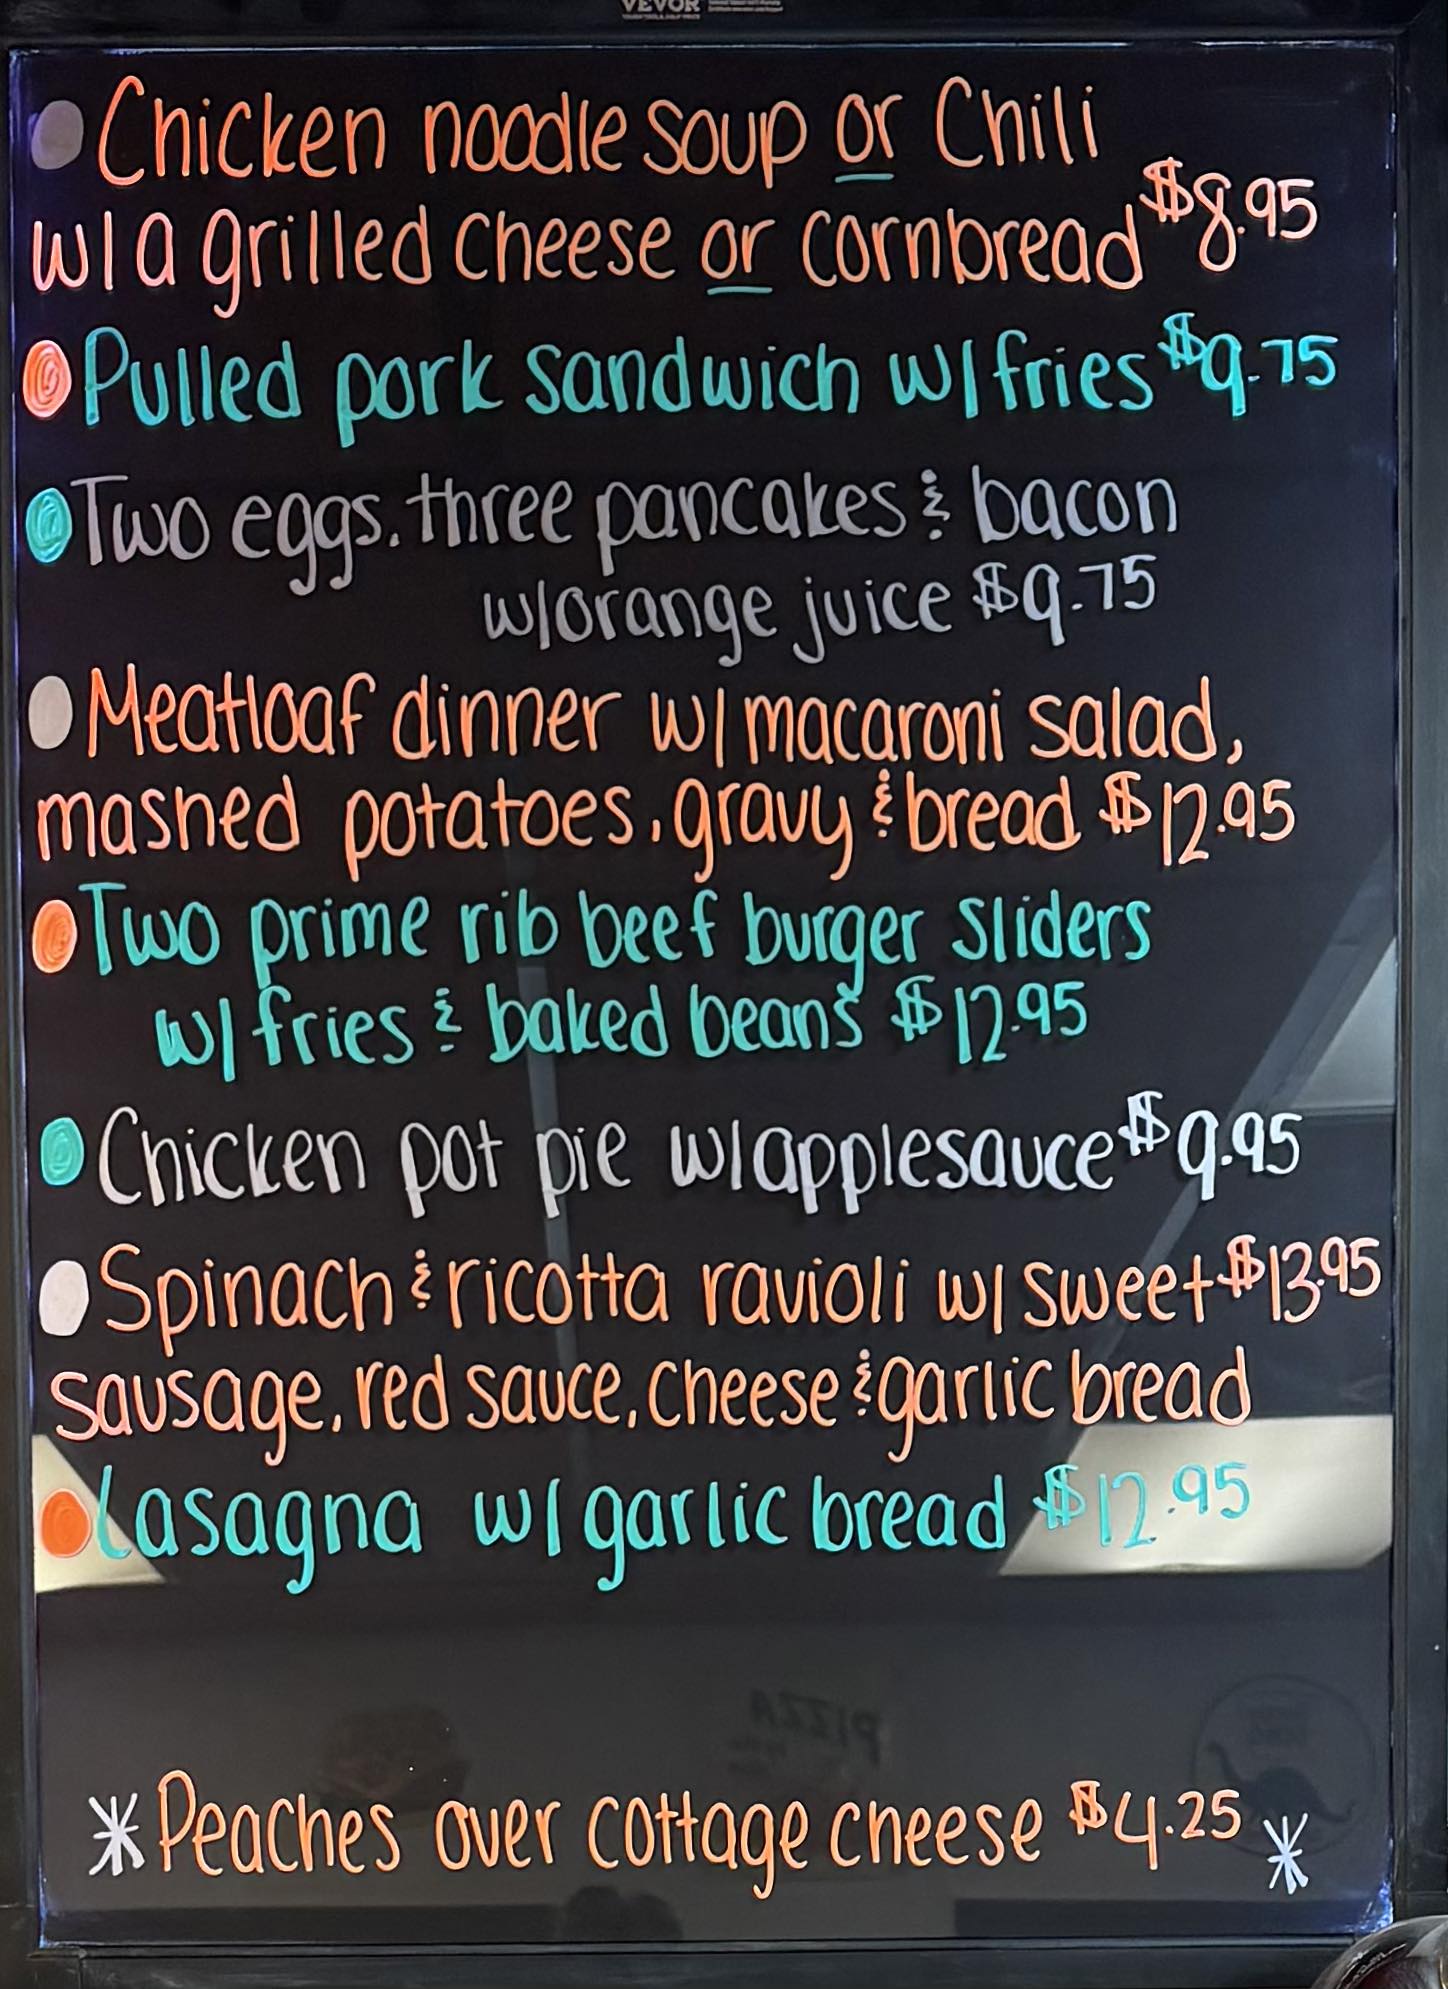 VEVOR
Chicken noodle soup or Chili
w/a grilled cheese or cornbread $8.95
Pulled pork sandwich w/fries $9.75
Two eggs, three pancakes & bacon
w/orange juice $9.75
Meatloaf dinner w/macaroni salad,
mashed potatoes, gravy & bread $12.95
Two prime rib beef burger sliders
w/fries & baked beans $12.95
Chicken pot pie w/applesauce $9.95
Spinach & ricotta ravioli w/ sweet $13.95
sausage, red sauce, cheese & garlic bread
Lasagna w/ garlic bread $12.95
PIZZA
*Peaches over cottage cheese $4.25*